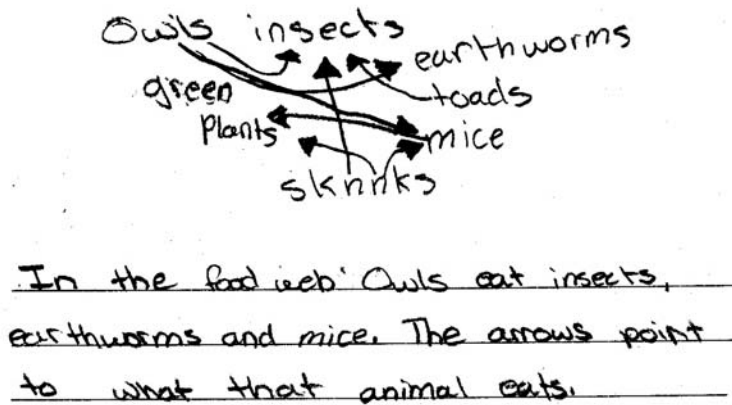 Owls insects
earthworms
green
toads
Plants
mice
sknnks
In the food web Owls eat insects,
earthworms and mice. The arrows point
to what that animal eats.